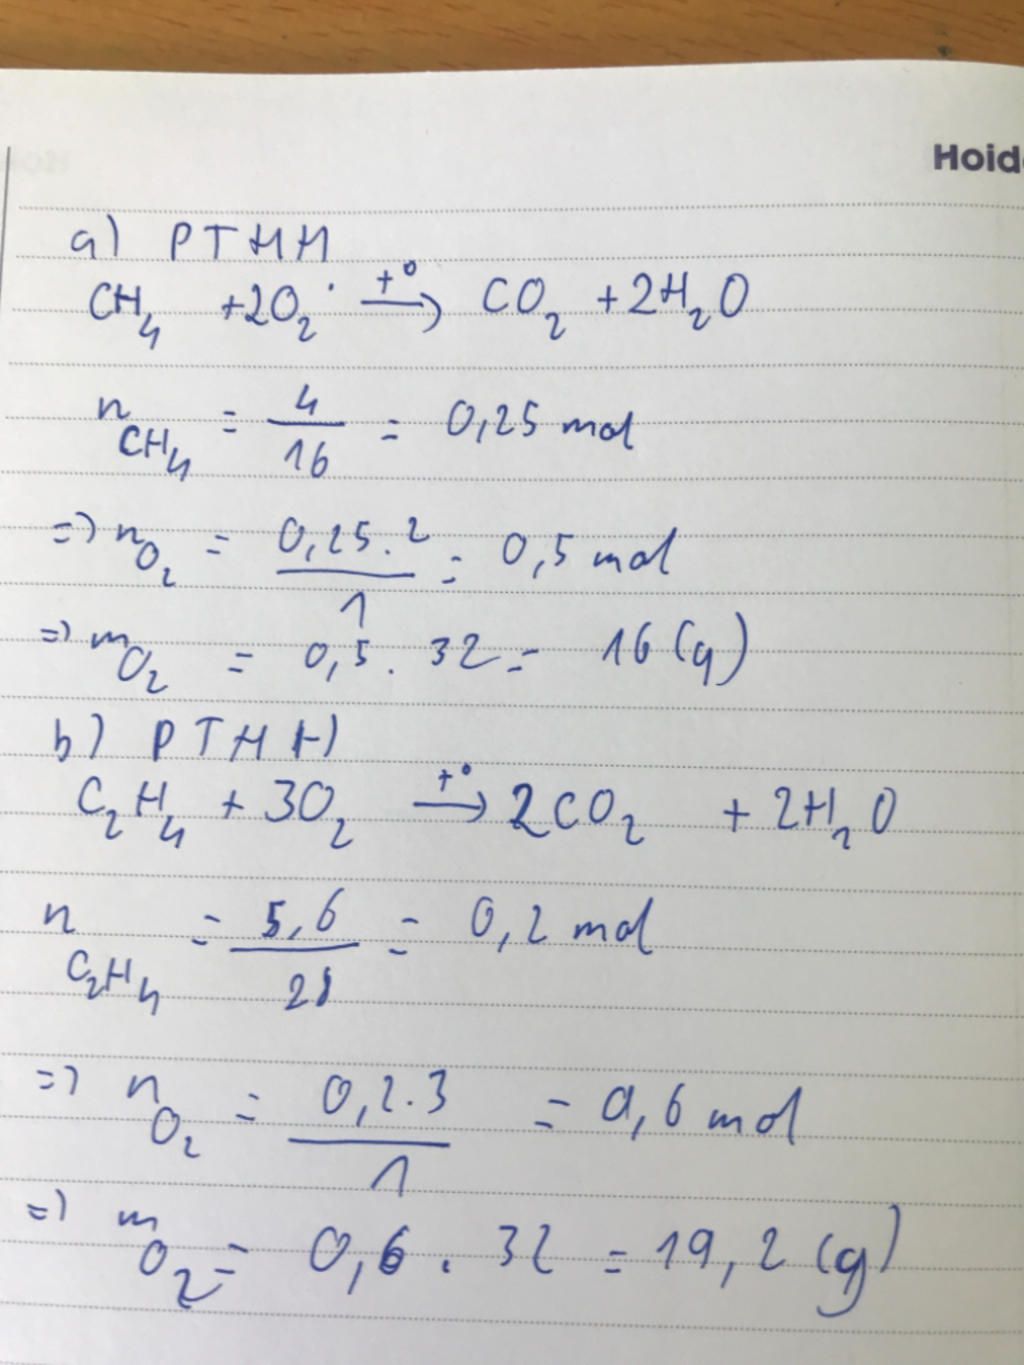 Hoid
a) PTHH
CH₄ + 2O₂ →(t°) CO₂ + 2H₂O
n CH₄ = 4/16 = 0,25 mol
=> n O₂ = 0,25.2/1 = 0,5 mol
=> m O₂ = 0,5 . 32 = 16 (g)
b) PTHH
C₂H₄ + 3O₂ →(t°) 2CO₂ + 2H₂O
n C₂H₄ = 5,6/28 = 0,2 mol
=> n O₂ = 0,2.3/1 = 0,6 mol
=> m O₂ = 0,6 . 32 = 19,2 (g)